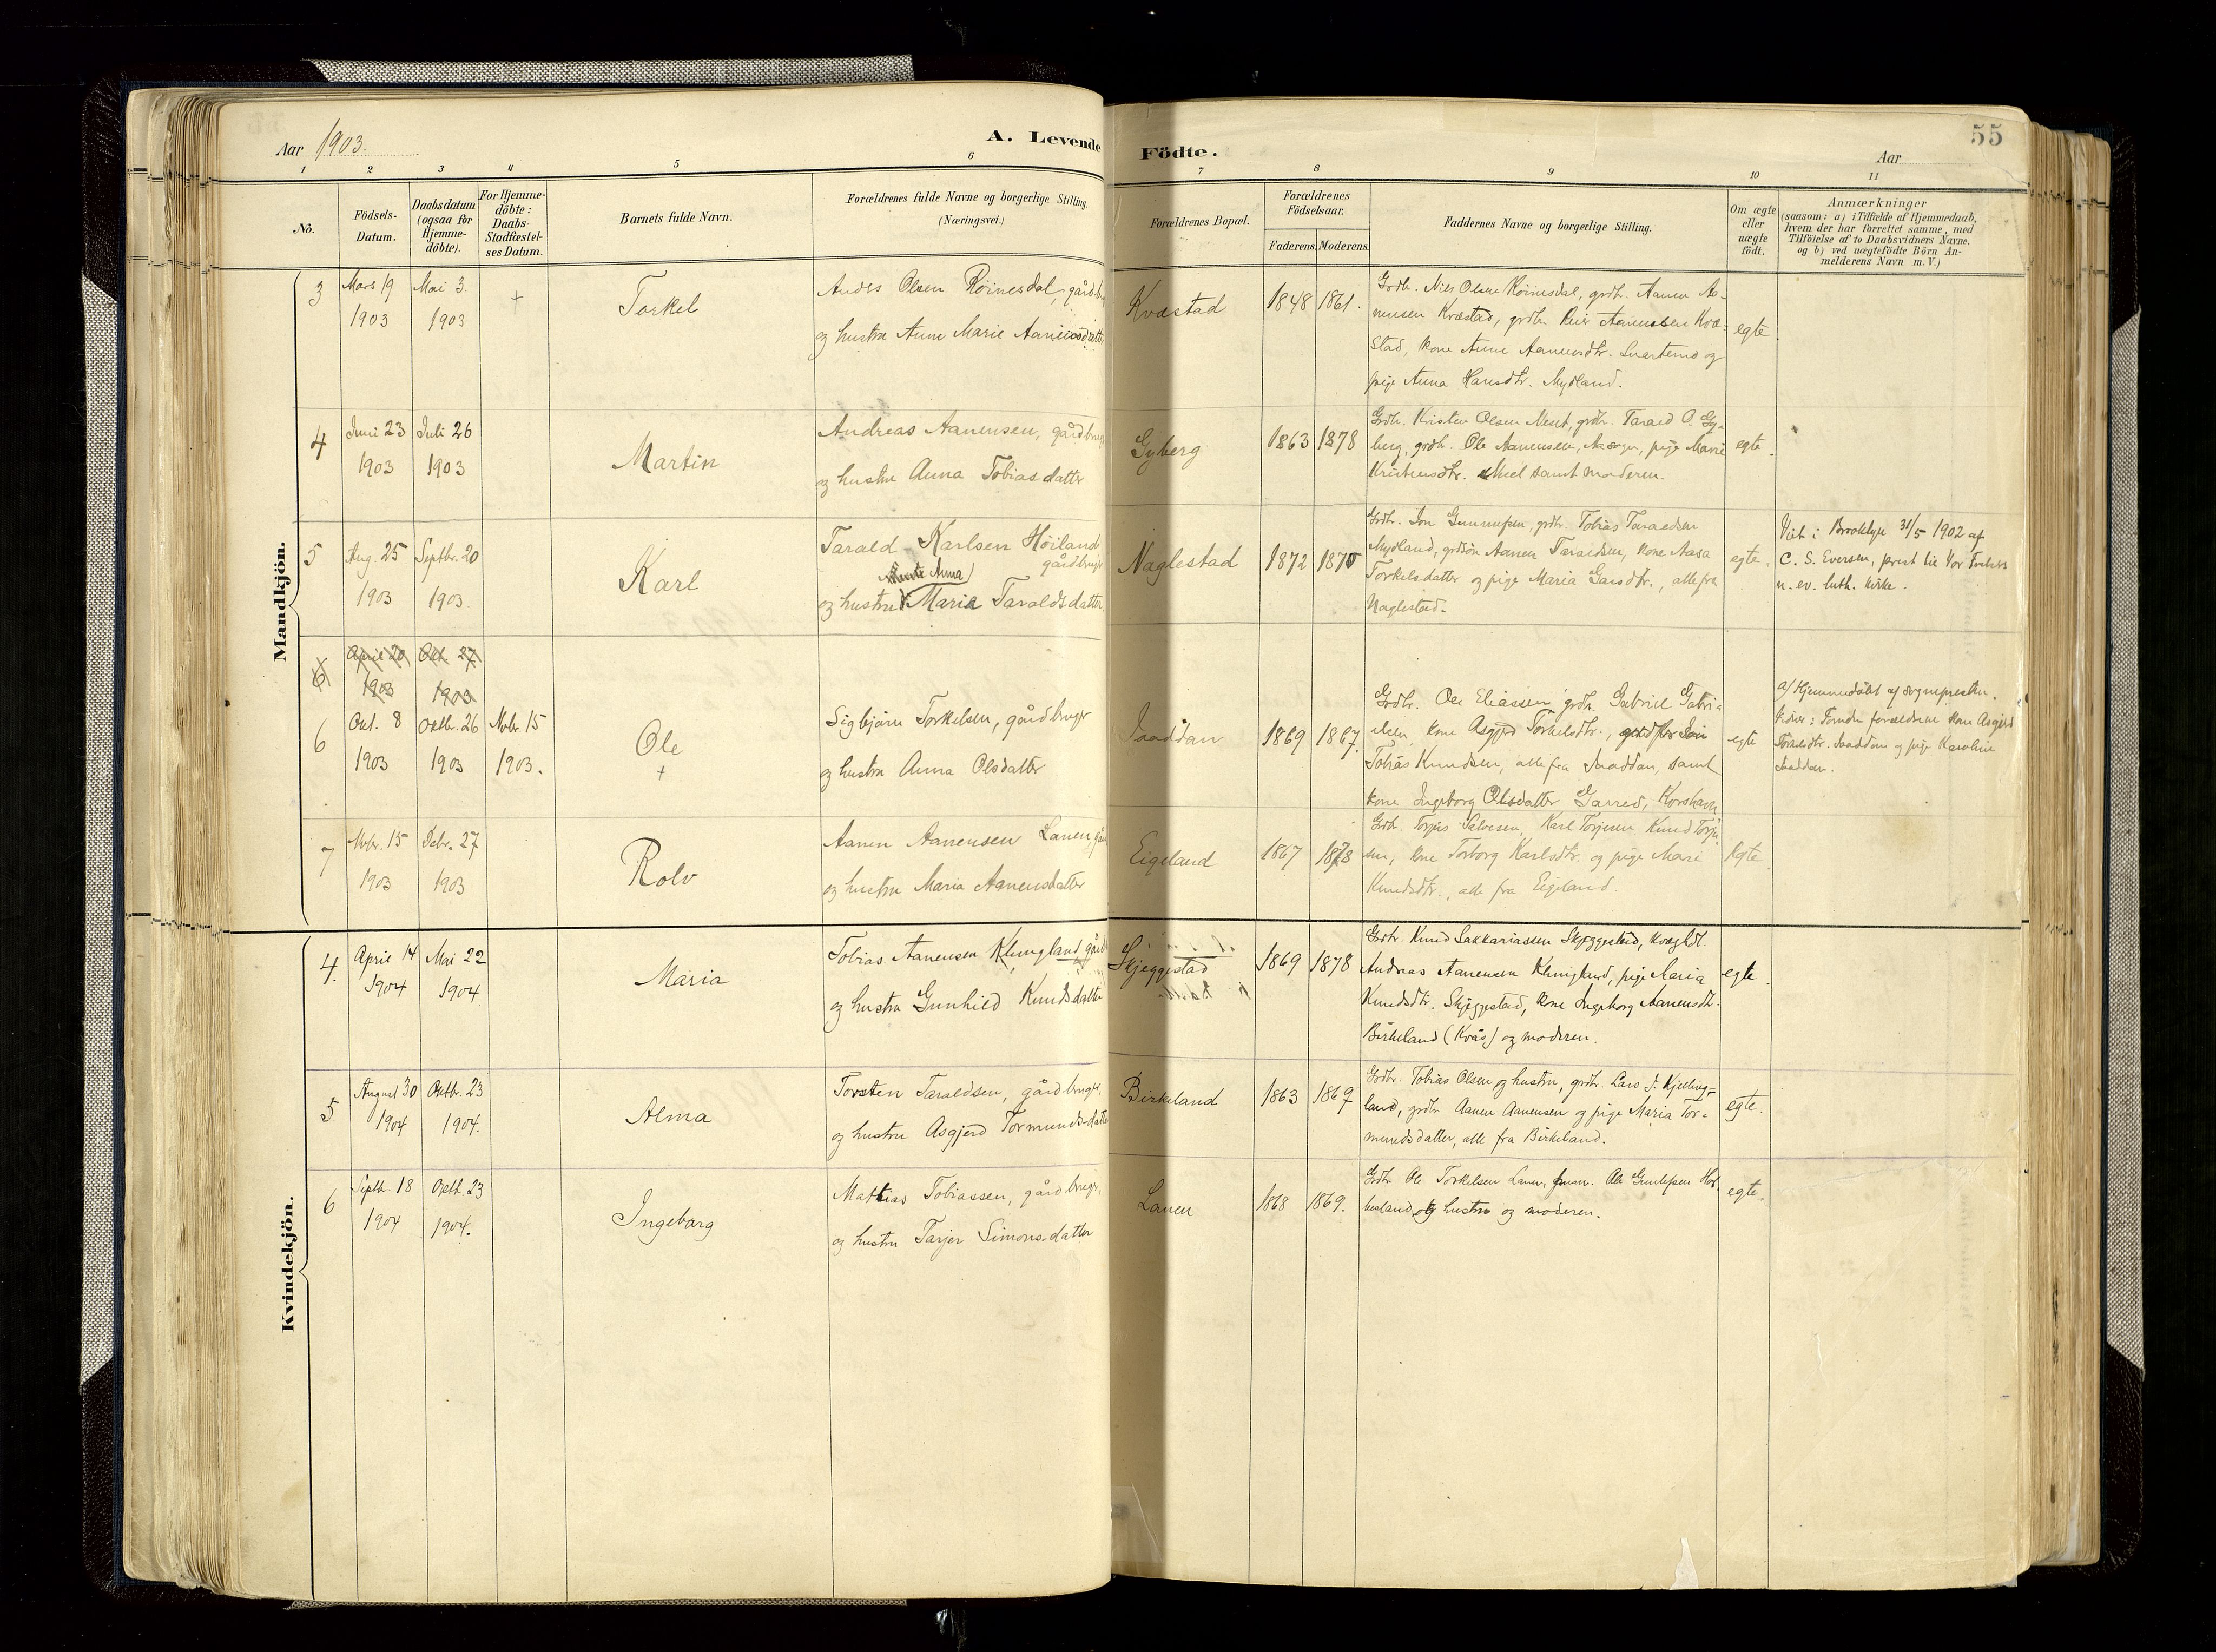 Aar 1903.
A. Levende
Födte.
Aar
55
1 2 3 4 5 6 7 8 9 10 11
Nö.
Födsels-
Datum.
Daabsdatum
(ogsaa for
Hjemme-
döbte).
For Hjemme-
döbte:
Daabs-
Stadfæstel-
ses Datum.
Barnets fulde Navn.
Forældrenes fulde Navne og borgerlige Stilling.
(Næringsvei.)
Forældrenes Bopæl.
Forældrenes
Födselsaar.
Faderens. Moderens.
Faddernes Navne og borgerlige Stilling.
Om ægte
eller
uægte
födt.
Anmærkninger
(saasom: a) i Tilfælde af Hjemmedaab,
hvem der har forrettet samme, med
Tilföielse af to Daabsvidners Navne,
og b) ved uægtefödte Börn An-
melderens Navn m. V.)
Mandkjön.
3
Mars 19
1903
Mai 3.
1903
+
Torkel
Anders Olsen Röinesdal, gårdbru
og hustru Anne Marie Aanensdatter
Kvæstad
1848 1861.
Grdb. Nils Olsen Röinesdal, grdb. Aanen Aa-
nensen Kvæstad, grdb. Reier Aanensen Kvæ-
stad, kone Anne Aanensdtr. Svartemo og
pige Anna Hansdtr. Mydland.
egte
4
Juni 23
1903
Juli 26
1903
Martin
Andreas Aanensen, gårdbrug
og hustru Anna Tobiasdatter
Gyberg
1863 1878
Grdb. Kristen Olsen, grdb. Tarald O. Gy-
berg, grdb. Ole Aanensen, pige Marie
Kristensdtr. samt moderen.
egte.
5
Aug. 25
1903
Septbr. 20
1903.
Karl
Tarald Karlsen Höiland
gårdbruger
Anna
og hustru Maria Taraldsdatter
Naglestad
1872 1870
Grdb. Jon Gunnufsen, grdb. Tobias Taraldsen
Mydland, grdsön Aanen Taraldsen, kone Aasa
Torkelsdatter og pige Maria, alle fra
Naglestad.
egte.
Viet i Brooklyn 31/5 1902 af
C. S. Eversen, prest til Vor Frelsers
n. ev. luth. kirke.
6
April 20
1903
Okt. 27
1903
6
Okt. 8
1903
Oktbr. 26
1903
Nvbr. 15
1903.
Ole
+
Sigbjörn Torkelsen, gårdbruger
og hustru Anna Olsdatter
Jaaddan
1869 1867.
Grdb. Ole Eliassen, grdb. Gabriel Gabri-
elsen, kone Asgjerd Torkelsdtr.,
Tobias Knudsen, alle fra Jaaddan, samt
kone Ingeborg Olsdatter Garred, Korshavn
egte
a/ Hjemmedöbt af sognepresten.
Vidner: Foruden forældrene kone Asgjerd
Torkelsdtr. Jaaddan og pige Karoline
Jaaddan.
7
Nvbr. 15
1903
Debr. 27
1903
Rolv
Aanen Aanensen Lauen, går
og hustru Maria Aanensdatter
Eigeland
1867 1878
Grdb. Torjus Salvesen, Karl Torjusen, Knud Torju-
sen, kone Torborg Karlsdtr. og pige Marie
Knudsdtr., alle fra Eigeland.
Egte
Kvindekjön.
4.
April 14
1904
Mai 22
1904
Maria
Tobias Aanensen Klungland, gård
og hustru Gunhild Knudsdatter
Skjeggestad
1869 1878
Grdb. Knud Sakkariassen Skjeggestad,
Andreas Aanensen Klungland, pige Maria
Knudsdtr. Skjeggestad, kone Ingeborg Aanensdtr.
Birkeland (Kvås) og moderen.
egte.
5
August 30
1904
Oktbr. 23
1904.
Alma
Torsten Taraldsen, gårdbruger,
og hustru Asgjerd Tormundsdatter
Birkeland
1863 1867
Grdb. Tobias Olsen og hustru, grdb. Lars J. Kjelling-
land, grdb. Aanen Aanensen og pige Maria Tor-
mundsdatter, alle fra Birkeland.
egte.
6
Septbr. 18
1904
Oktb. 23
1904.
Ingeborg
Mattias Tobiassen, gårdbruger,
og hustru Tarjer Simonsdatter
Lauen
1868 1869.
Grdb. Ole Torkelsen Lauen, Ole Gunlefsen
og hustru og moderen.
egte.